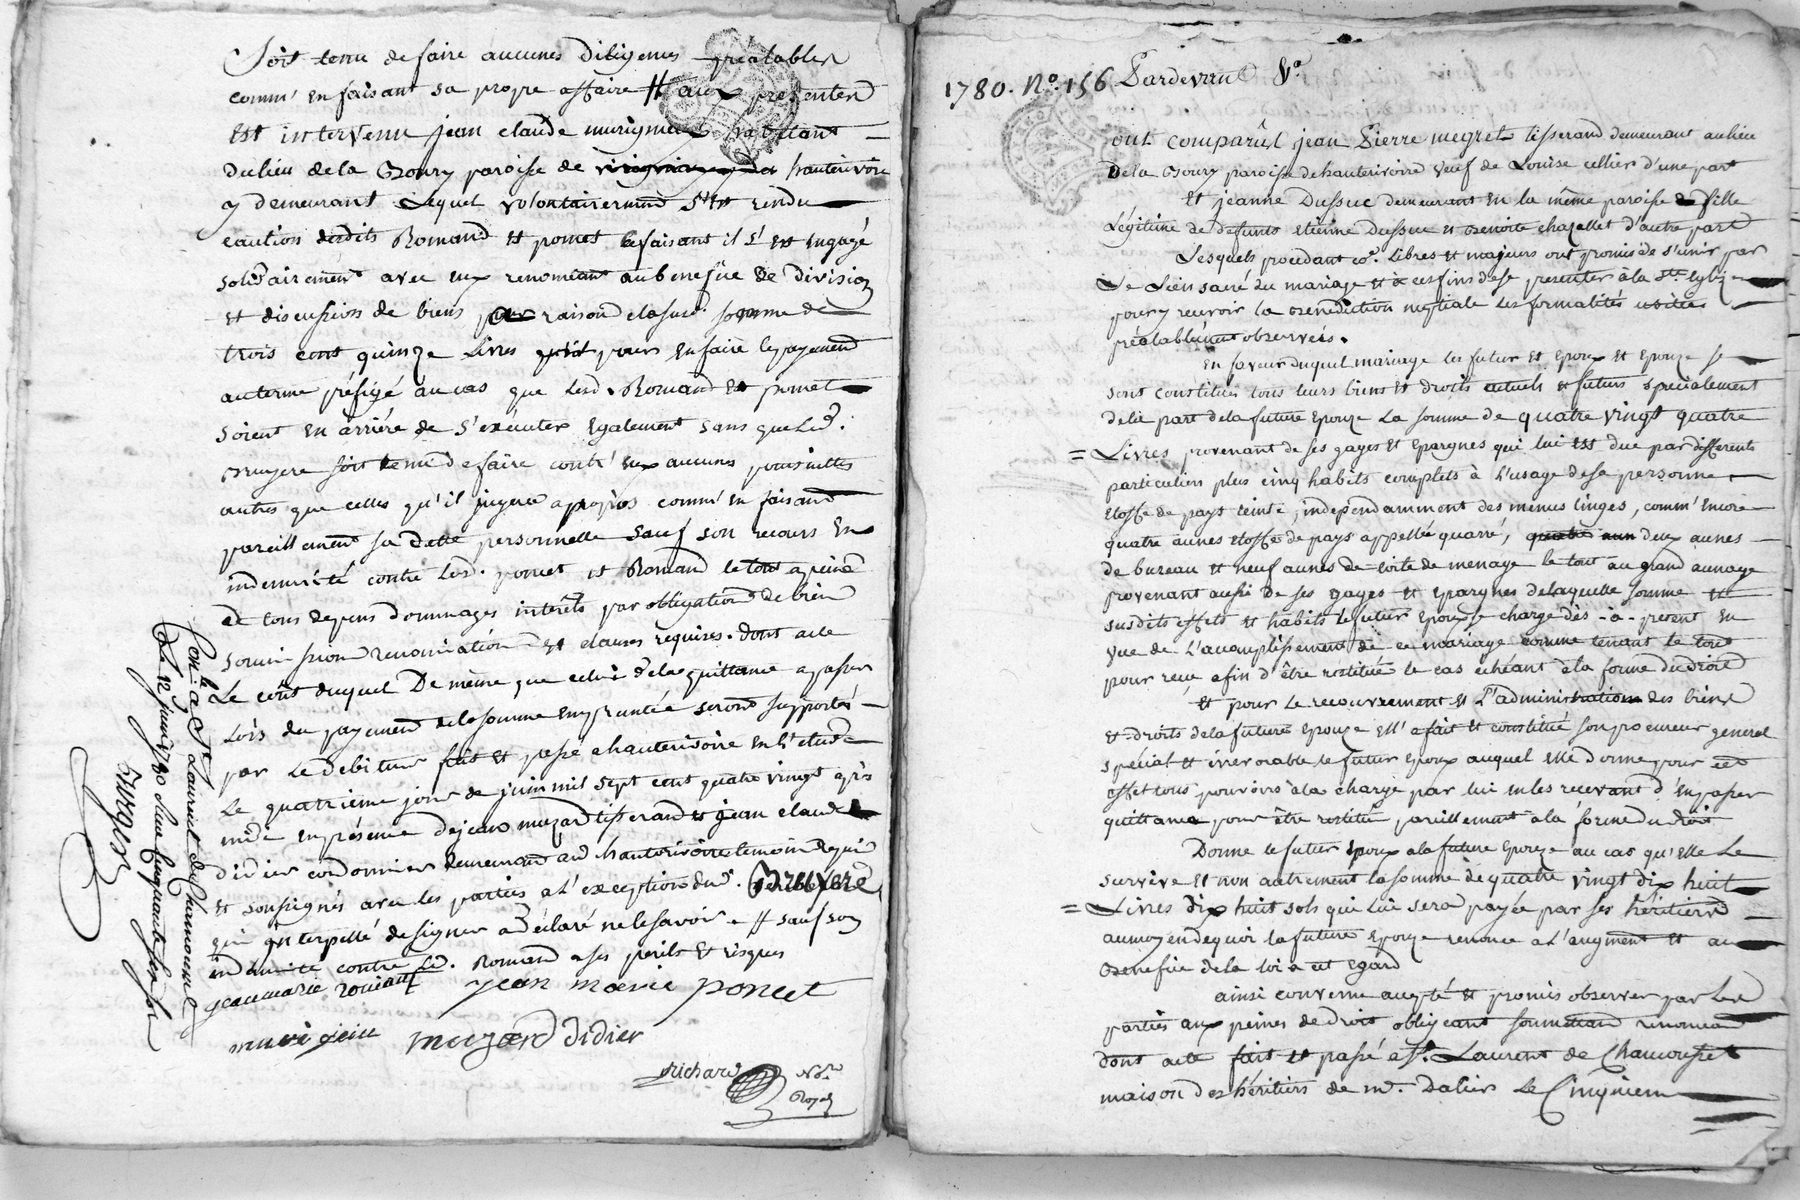 soit tenu de faire aucunes diligences préalables
comm' en faisant sa propre affaire # aux présentes
est intervenu jean claude murigneux habitant
du lieu de la Boury paroisse de hauterivoire
y demeurant Lequel volontairement s'est rendu
caution desdits Romand et poncet ce faisant il s'est engagé
solidairement avec eux renonceant au benefice de division
et discussion de biens raison de la susd. somme de
trois cent quinze Livres pour en faire le payement
au terme préfigé au cas que lesd. Romand et poncet
soient en arriére de s'exécuter egalement sans que led.
Bruyere soit tenu de faire contr' eux aucunes poursuittes
autres que celles qu'il jugera apropos comm' en faisant
pareillement sa dette personnelle sauf son recours en
indemnité contre lesd. poncet et Romand le tout a peine
de tous depens dommages interêts par obligation de biens
soumission renonciation et clauses requises. dont acte
Le coût duquel De même que celui de la quittance a passer
Lors du payement de la somme empruntée seront supportés
par le Debiteur fait et passé a hauterivoire en l'etude
le quatrieme jour de juin mil sept cent quatre vingt après
midi en présence de jean muzard tisserand et jean claude
didier cordonnier demeurant aud. hauterivoire temoins requis
et soussignés avec les parties a l'exception dud. Bruyere
qui interpellé de signer a déclaré ne le savoir # sauf son
indemnité contre led. Romand a ses perils et risques
jean marie romand jean marie poncet
murigneux muzard didier
richard Nore
Royal
Con.lé a St Laurient de Chamousset
Le 12 juin 1780 Reçu cinquante six sols
Burger
1780. No. 156 Pardevant Vo
ont comparu jean Pierre megret tisserand demeurant au lieu
de la Boury paroisse de hauterivoire veuf de Louise cellier d'une part
Et jeanne Dussuc demeurant en la même paroisse fille
Légitime de defunts etienne Dussuc et Benoite chazallet d'autre part
Lesquels procedant co. Libres et majeurs ont promis de s'unir par
Le Lien sacré du mariage et a ces fins de se presenter à la Ste Eglize
pour y recevoir la Bénédiction nuptiale les formalités usitées
préalablement observées.
En faveur duquel mariage les futur et Epoux et Epouze se
sont constitués tous leurs biens et droits actuels et futurs spécialement
de la part de la future Epouze la somme de quatre vingt quatre
= Livres provenant de ses gages et Epargnes qui lui est due par differents
particuliers plus cinq habits complets à l'usage de sa personne
etoffe de pays teinte, independamment des menus linges, comm' encore
quatre aunes etoffe de pays appellée quarré, deux aunes
de bureau et neuf aunes de toile de menage le tout au grand aunage
provenant aussi de ses gages et epargnes de laquelle somme et
susdits effets et habits le futur Epoux se charge dès-à-present en
vue de l'acomplissement de ce mariage comme tenant le tout
pour reçu afin d'être restituée le cas échéant à la forme du droit
Et pour le recouvrement et l'administration des biens
et droits de la future Epouze ell' a fait et constitué son procureur general
spécial et irrevocable le futur Epoux auquel elle donne pour cet
effet tous pouvoirs à la charge par lui en les recevant d'en passer
quittance pour être restitué pareillement à la forme du droit
Donne le futur Epoux a la future Epouze au cas qu'elle le
survive et non autrement la somme de quatre vingt dix huit
= Livres dix huit sols qui lui sera payée par ses héritiers
au moyen de quoi la future Epouze renonce a l'augment et au
Benefice de la loi a cet egard
ainsi convenu accepté et promis observer par les
parties aux peines de droit obligeant soumettant renonceant
dont acte fait et passé a St. Laurent de Chamousset
maison des héritiers de m. Dalier Le Cinquieme